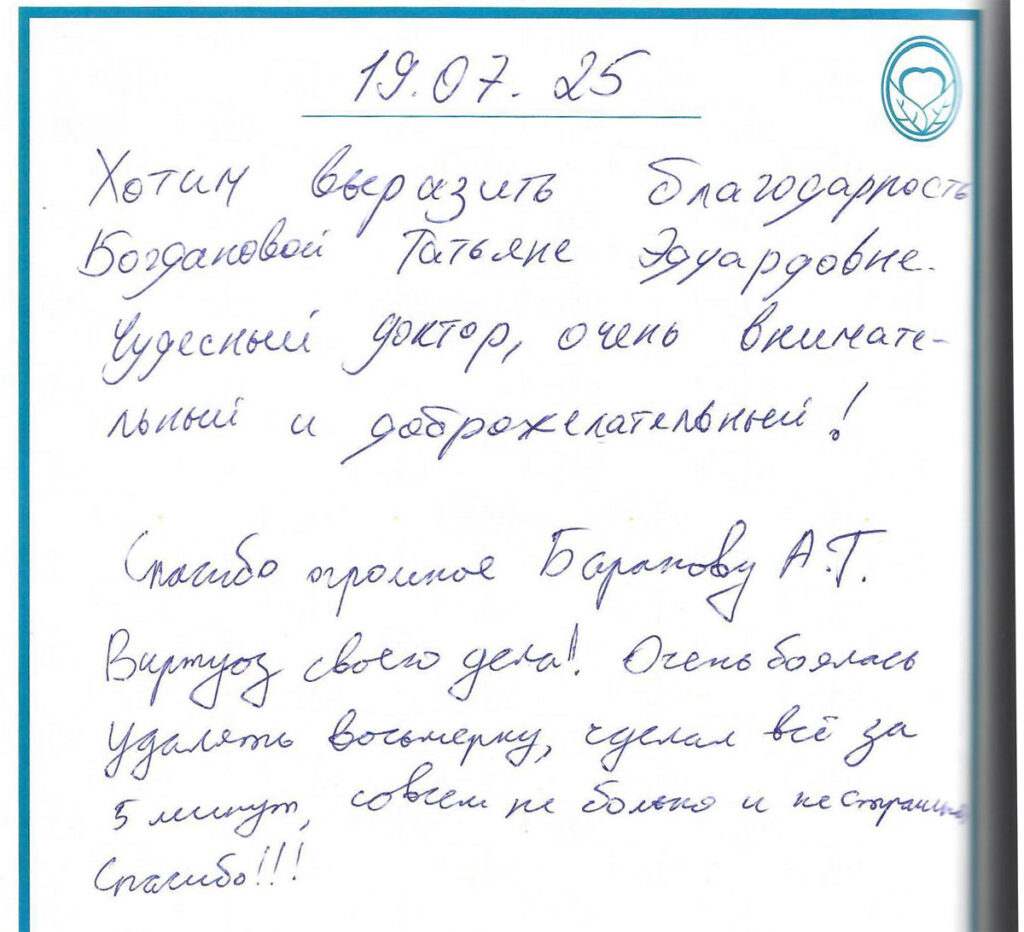 19.07.25
Хотим выразить благодарность
Богдановой Татьяне Эдуардовне.
Чудесный доктор, очень внимате-
льный и доброжелательный!
Спасибо огромное Баранову А.Т.
Виртуоз своего дела! Очень боялась
удалять восьмерку, сделал всё за
5 минут, совсем не больно и не страшно
Спасибо!!!